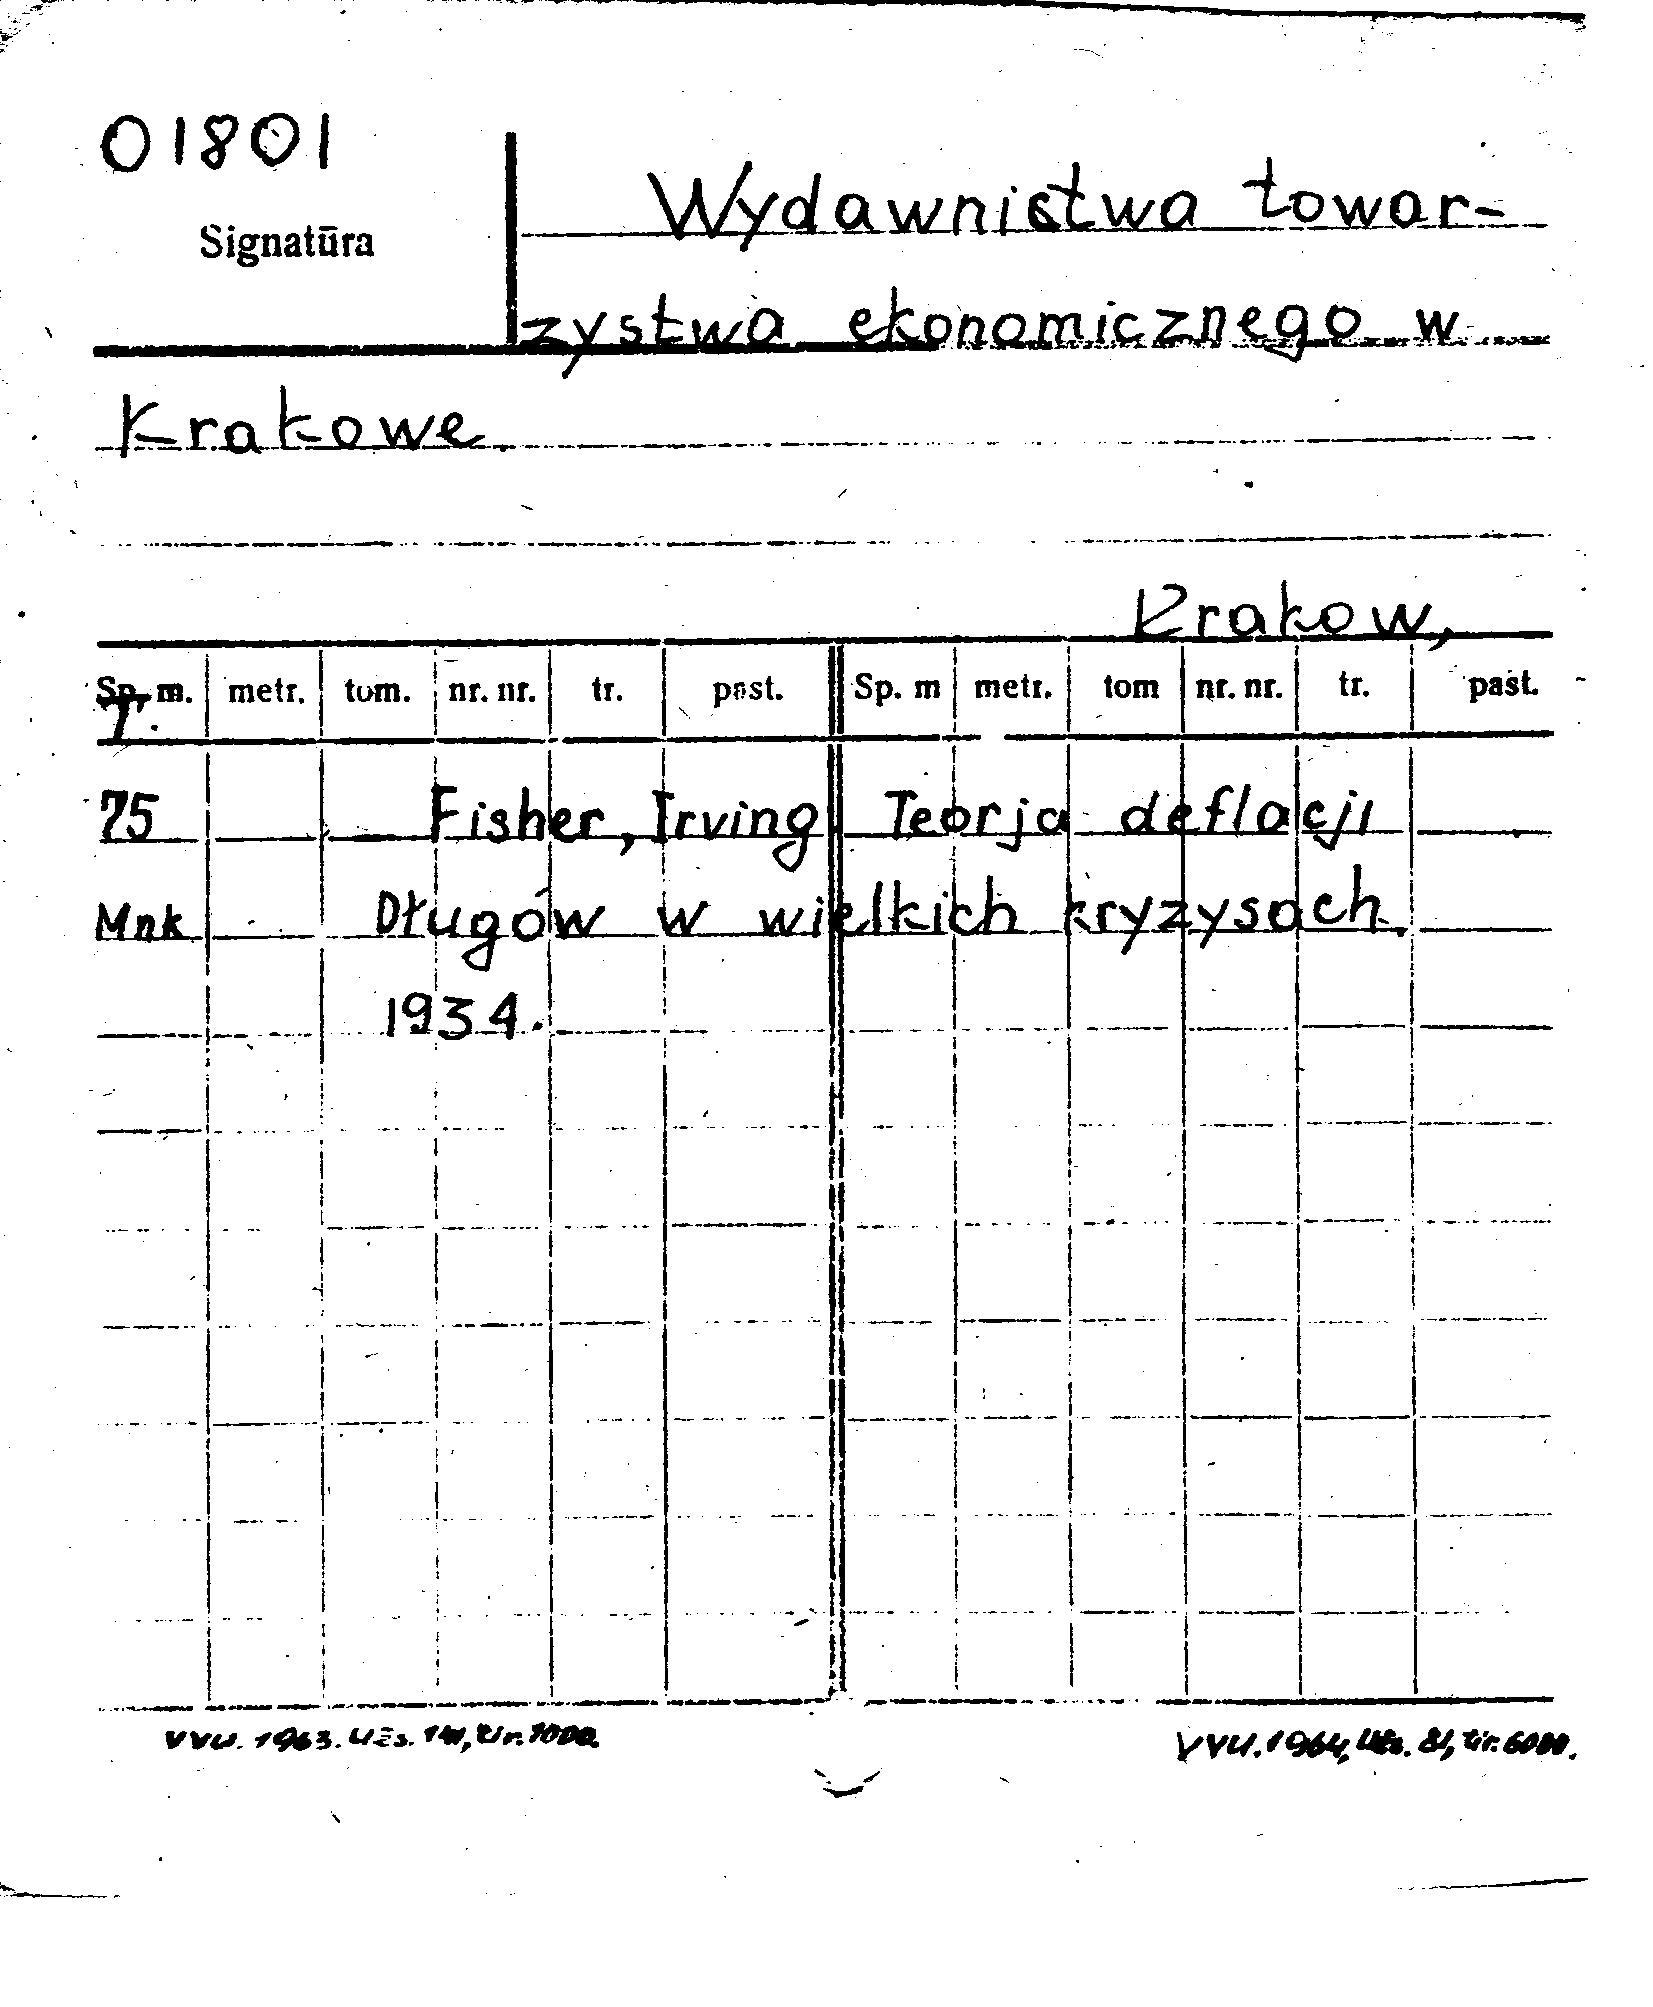 01801
Signatūra
Wydawnictwa towar-
zystwa ekonomicznego w
Krakowe.
Krakow,
Sp. m. metr. tom. nr. nr. tr. past. Sp. m metr. tom nr. nr. tr. past.
T.
75 Fisher, Irving Teorja deflacji
Mnk Długów w wielkich kryzysach.
1934.
VVU. 1963. Užs. 141, tir. 1000.
VVU. 1964, Užs. 81, tir. 6000.